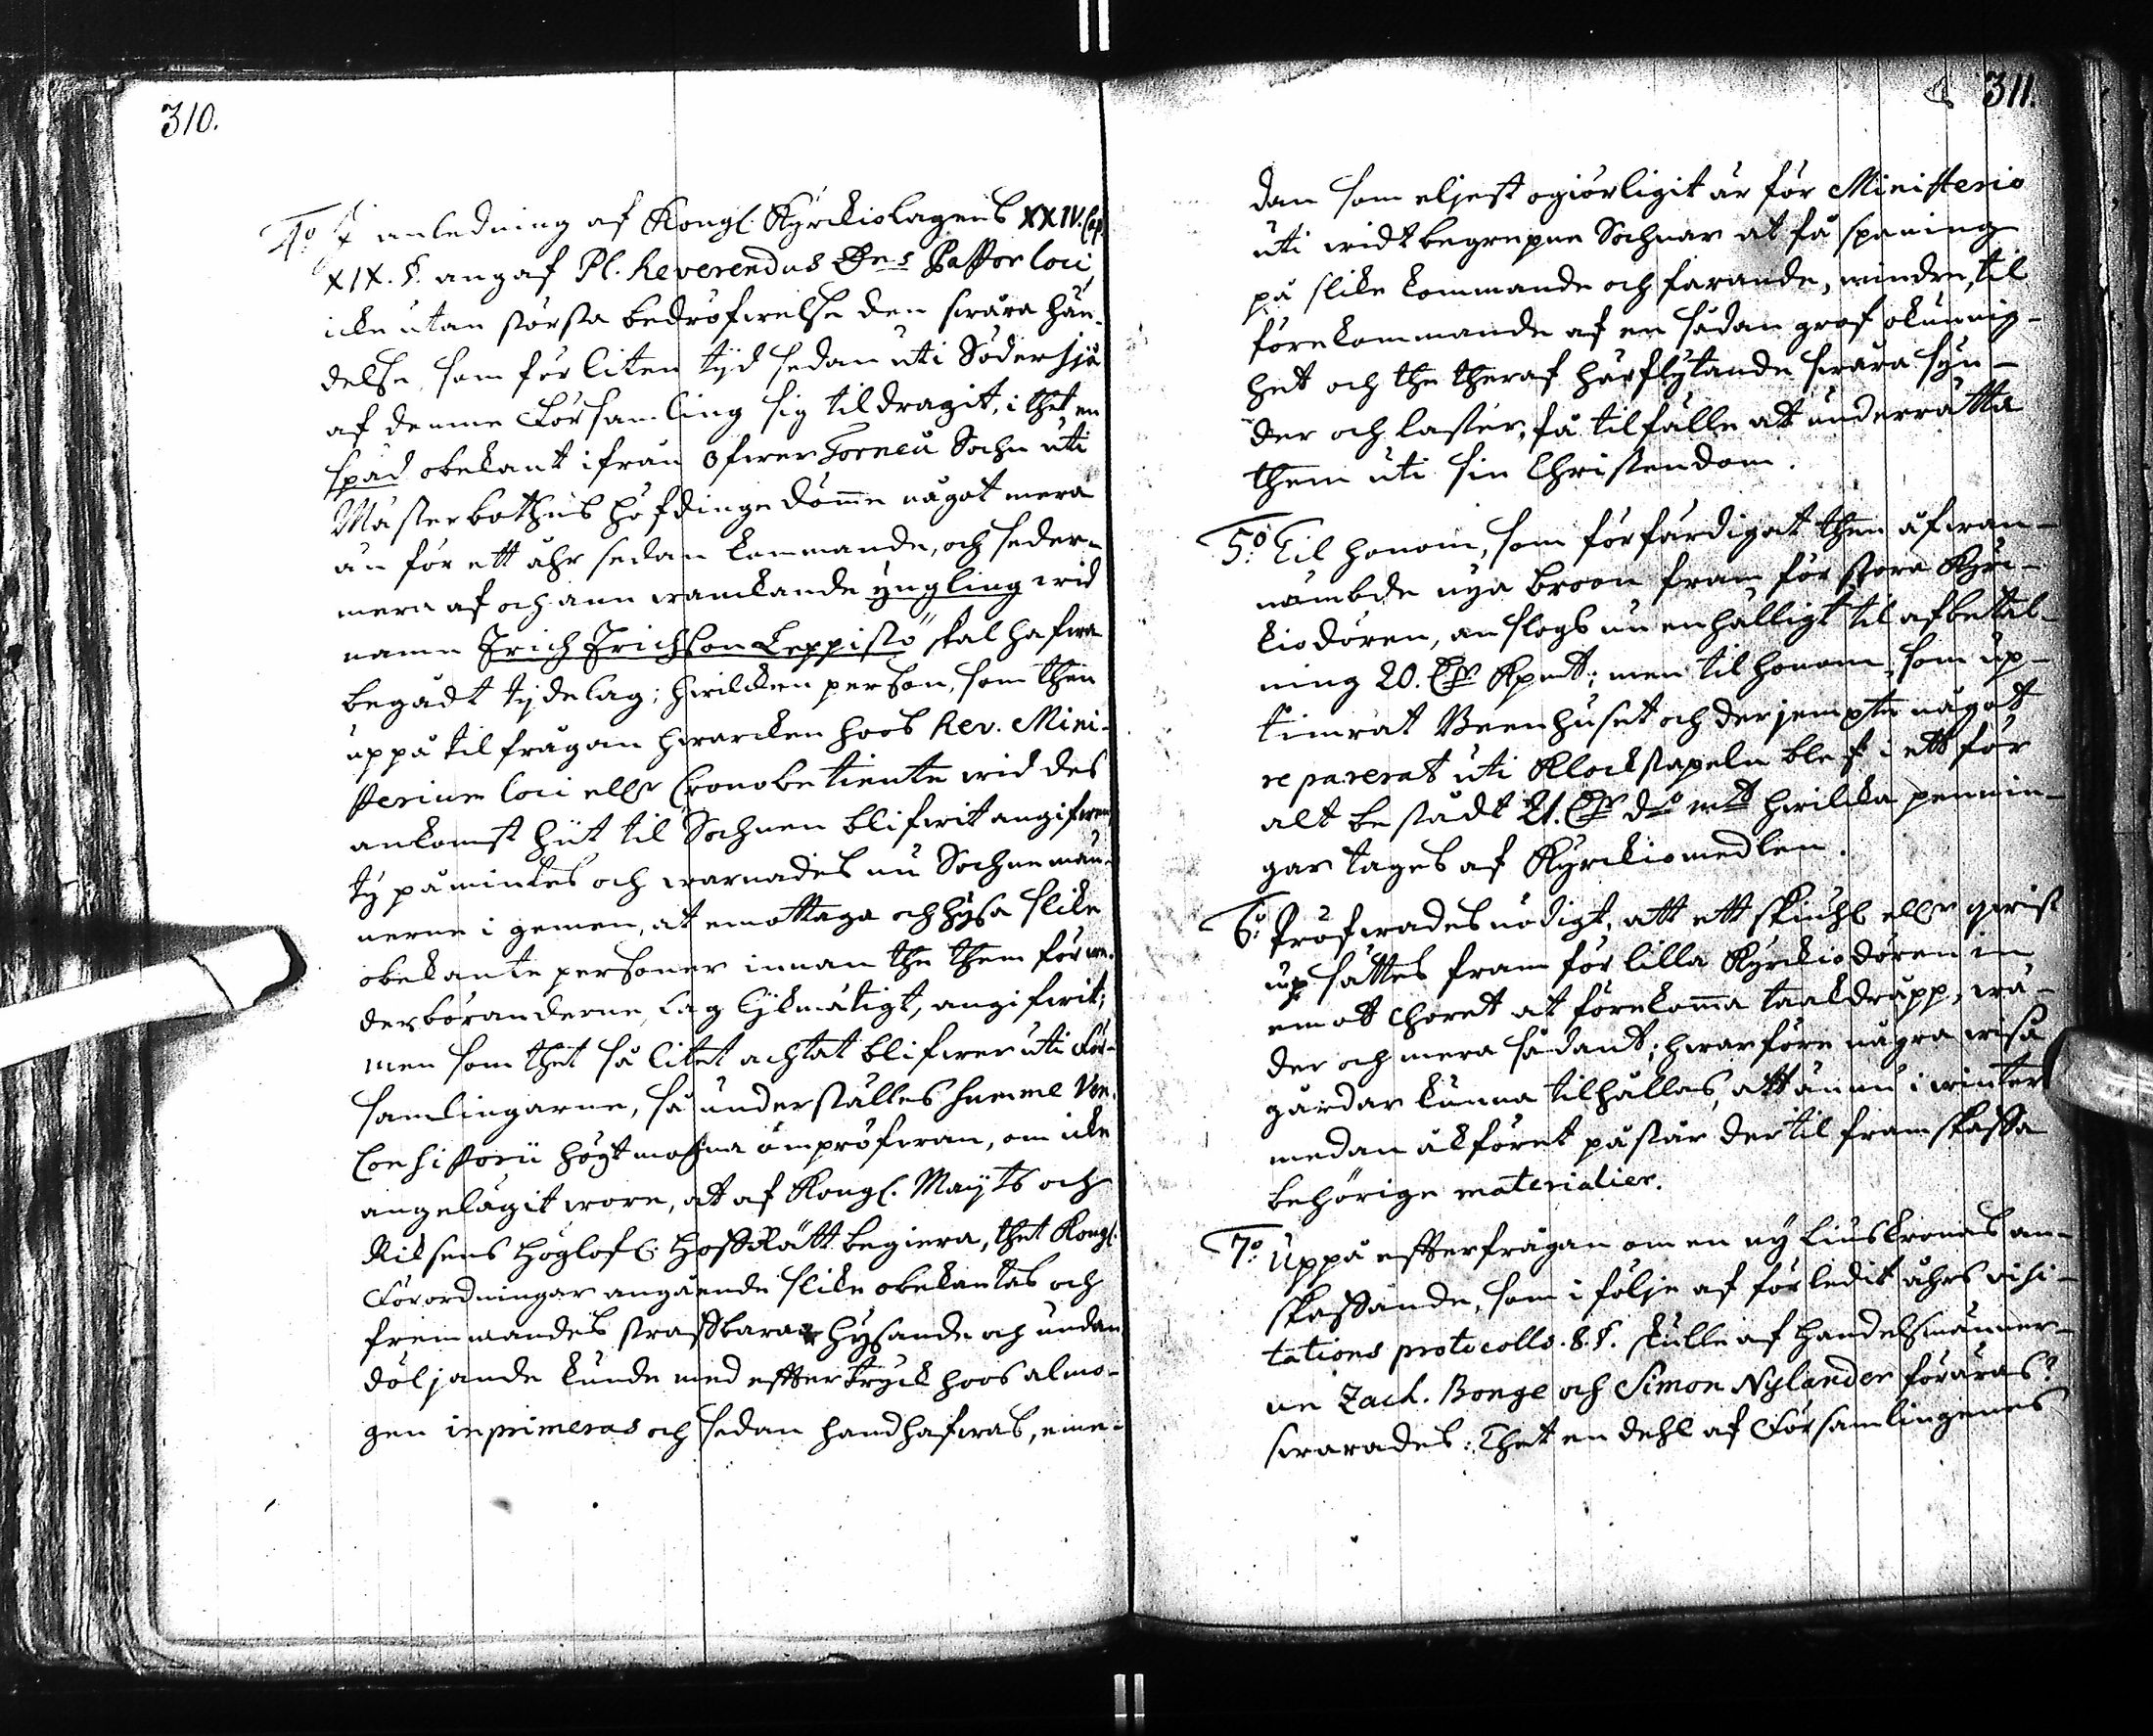 310.
4:o I anledning af Kongl. Kyrckiolagens XXIV. Cap.
XIX. §. angaf Pl. Reverendus Dns Pastor loci,
icke utan största bedröfwelse den swåra hän-
delse, som för liten tijd sedan uti Södersjö
af denne Församling sig tildragit, i thet en
spad obekant ifrån Öfwer Torneå Sochn uti
Wästerbothns höfdingedöme något mera
än för ett åhr sedan kommande, och seder-
mera af och ann wanckande yngling wid
namn Erich Erichson Leppistö skal hafwa
begådt tydelag; hwilcken person, som then
uppå tilfrågan hwarcken hoos Rev. Mini-
sterium loci eller Cronobetiente wid des
ankomst hiit til Sochnen blifwit angifwen,
ty påmintes och warnades nu Sochnemän-
nerne i gemen, at emottaga och hysa slike
obekante personer innan the them för we-
derböranderne, lag lijkmätigt, angifwit;
men som thet så litet achtat blifwer uti För-
samlingarne, så understältes summe Ven.
Consistorii högtmogna ompröfwan, om icke
angelägit wore, at af Kongl. Maij:ts och
Riksens Höglofl. HofRätt begiera, thet Kongl.
Förordningar angående slike obekantas och
fremmandes straffbara hysande och undan
döljande kunde med eftertryck hoos almo-
gen inprimeras och sedan handhafwas, eme-
311.
dan som eljest ogiörligit är för Ministerio
uti widt begrepne Sochnar at få spaning
på slike kommande och farande, mindre, til
förekommande af en sådan graf okunnig-
het och the theraf härflytande swåra syn-
der och laster, få tilfälle att underrätta
them uti sin Christendom.
5:o Til honom, som förfärdigat then åfwan-
nämbde nya broon fram för stora Kyrc-
kiodören, anslogs nu enhälligt til afbetal-
ning 20. Dlr Kpmt; men til honom, som up-
timrat Beenhuset och derjempte något
reparerat uti Klockstapeln blef i ett för
alt bestådt 21. Dlr do mt hwilcka pennin-
gar tages af Kyrckiomedlen.
6:o Pröfwades nödigt, att ett skiuhl eller qwist
up sättes fram för lilla Kyrckiodören in
emot Choret at förekoma taakdrupp, wä-
der och mera sådant; hwarföre några wissa
gårdar kunna tilhållas, att ännu i winter
medan åkföret påstår dertil framskaffa
behörige materialier.
7:o Uppå efterfrågan om en ny liuskronas an-
skaffande, som i följe af förledit åhrs visi-
tations protocolls. 8. §. skulle af handelsmänner-
ne Zach. Bonge och Simon Nylander föräras?
swarades: Thet en dehl af Församlingenes